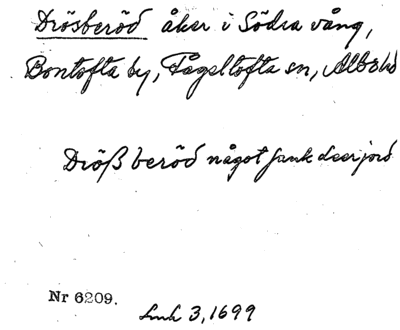 Drösberöd åker i Södra vång,
Bontofta by, Fågeltofta sn, Albo hd
Dröß beröd något sank leerjord
Nr 6209.
Lmk 3, 1699